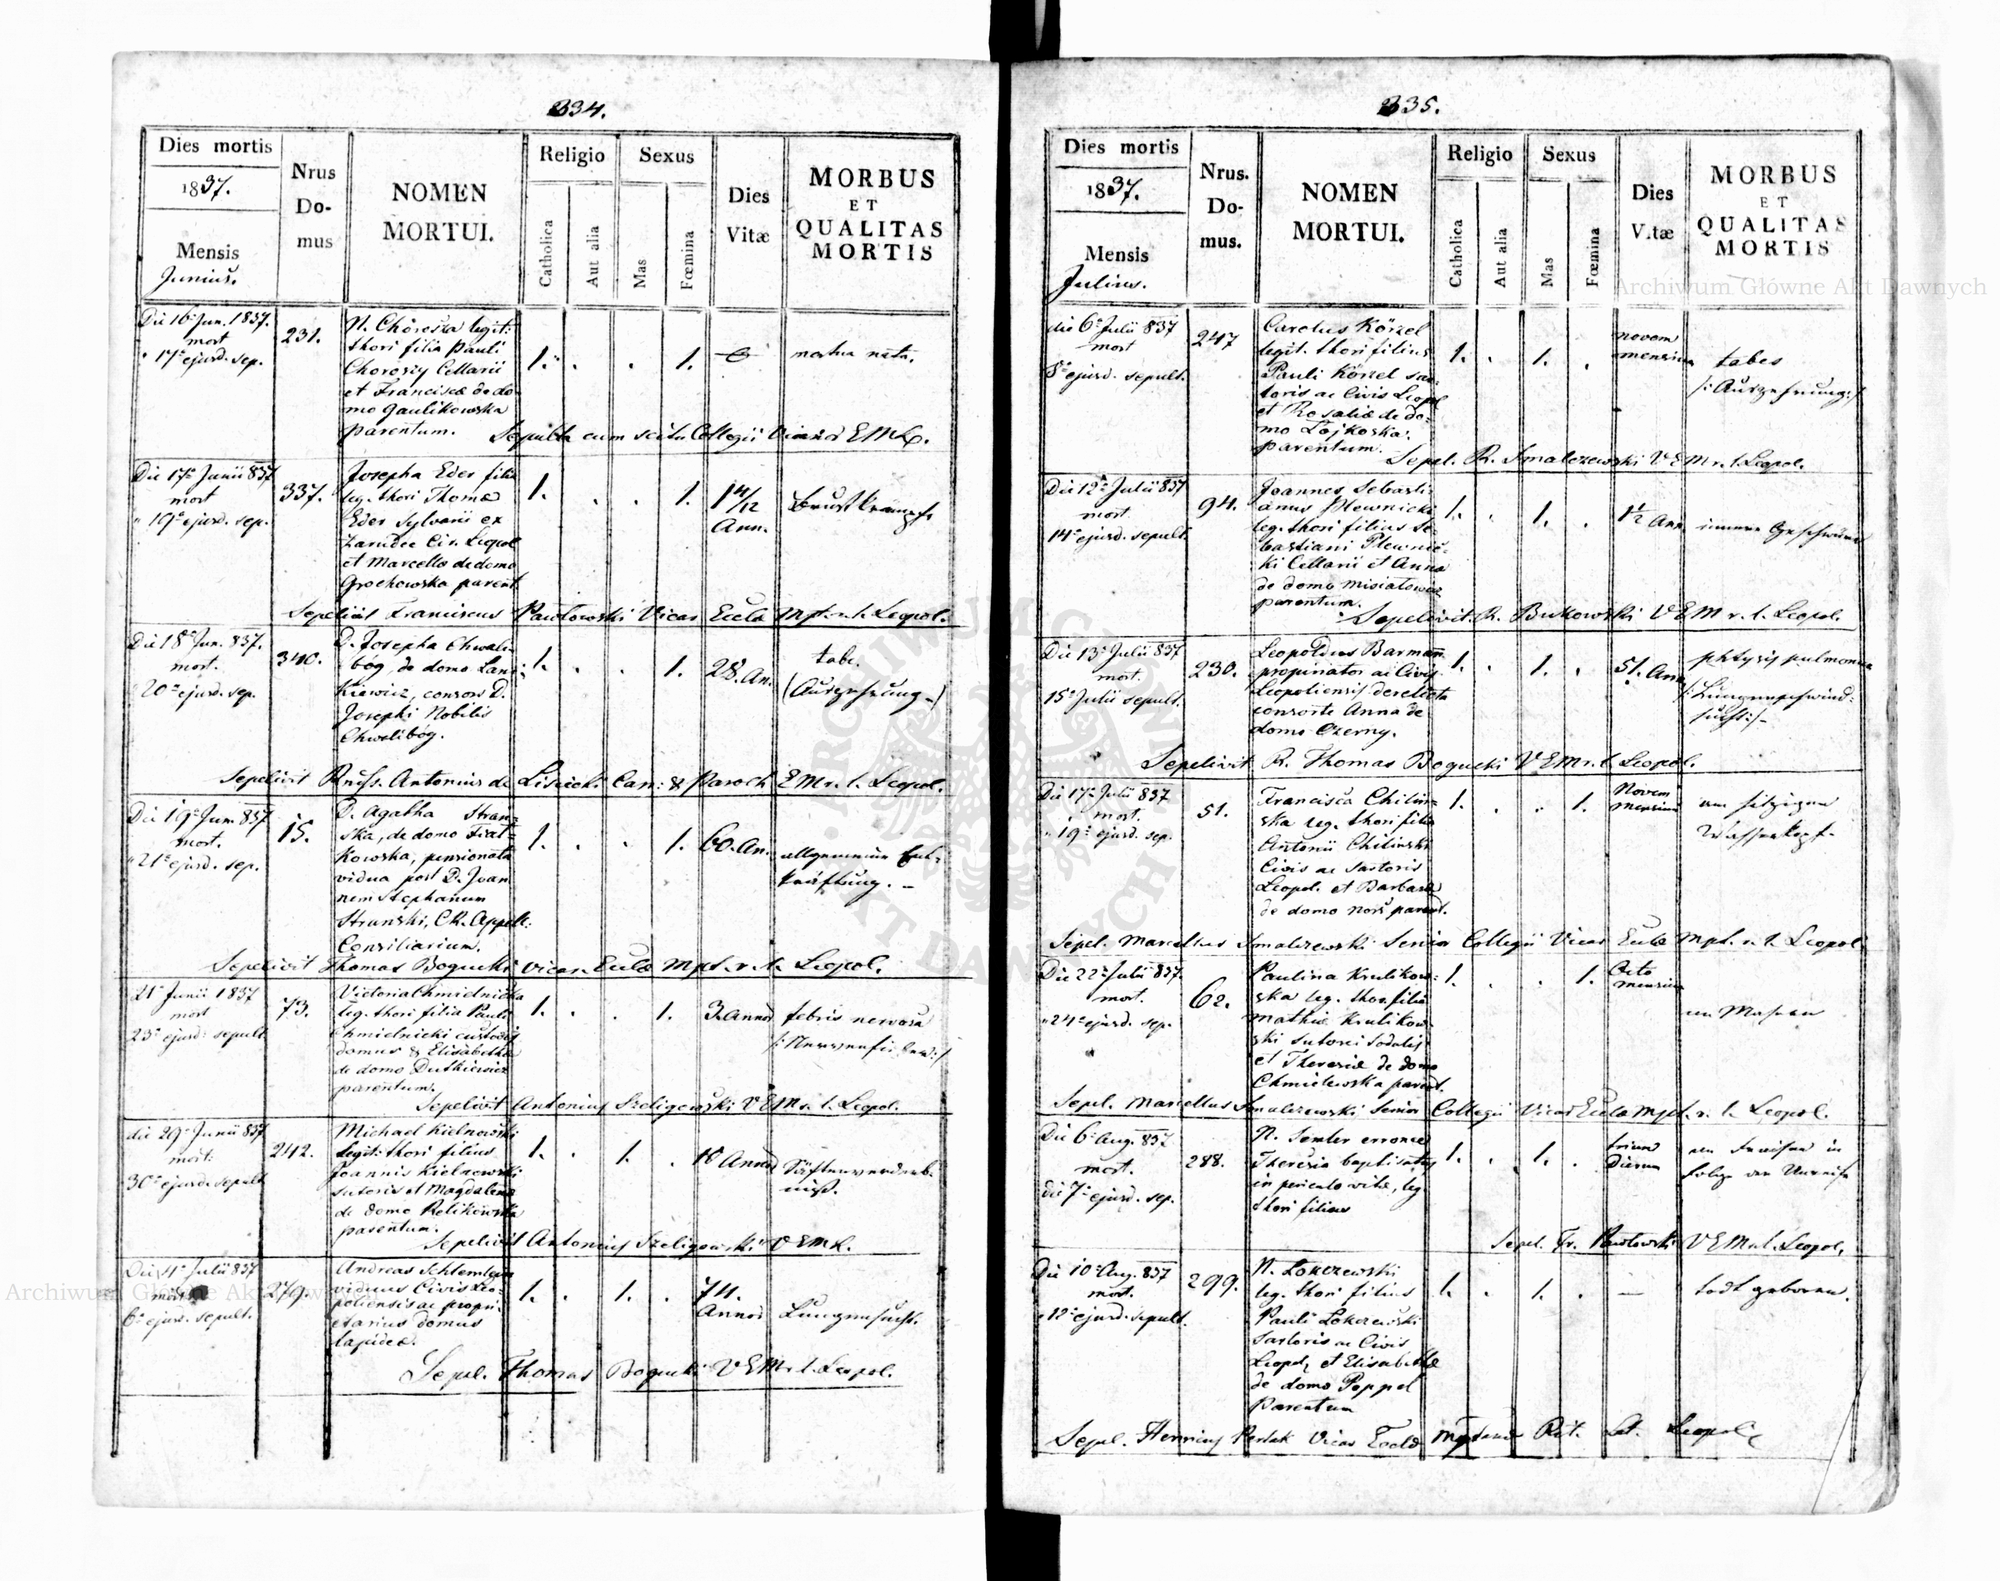 334.
Dies mortis
1837.
Mensis
Junius.
Nrus
Do-
mus
NOMEN
MORTUI.
Religio
Catholica
Aut alia
Sexus
Mas
Fœmina
Dies
Vitæ
MORBUS
ET
QUALITAS
MORTIS
Die 16a Jun. 1837.
mort
" 17a ejusd. sep.
231.
N. Choroszia legit.
thori filia Pauli
Chorosiy Cellarii
et Franciscæ de do-
mo Gaulikowska
parentum.
1. . . 1.
mortua nata.
Sepulta cum scitu Collegii
Die 17a Junii 837
mort
" 19a ejusd. sep.
337.
Josepha Eder filia
leg. thori Thomæ
Eder Sylvani ex
Zarudce Civ. Leopol
et Marcella de domo
Grochowska parent.
1. . . 1.
1 4/12
Ann.
Brustkrämpfe
Sepelivit Franciscus Pawlowski Vicar Eccla Mpt. r. l. Leopol.
Die 18a Jun. 837.
mort.
" 20a ejusd. sep.
340.
D. Josepha Chwali-
bóg, de domo Lans-
kiewicz, consors D.
Josephi Nobilis
Chwalibóg.
1. . . 1.
28. An.
tabe.
(Auszehrung.)
Sepelivit Antonius de Can: & Paroch EMr. l. Leopol.
Die 19a Jun. 837
mort.
" 21a ejusd. sep.
15.
D. Agatha Stran-
ska, de domo Fiat-
kowska, pensionata
vidua post D. Joan
nem Stephanum
Stranski, CR. Appell.
Consiliarium.
1. . . 1.
60. An.
allgemeine Ent-
kräftung. -
Sepelivit Thomas Bogucki Vicar. Eccla Mpt. r. l. Leopol.
21a Junii 1837
mort
23a ejusd. sepult
73.
Victoria Chmielnicka
leg. thori filia Pauli
Chmielnicki custodis
domus & Elisabetha
de domo Dutkiewicz
parentum.
1. . . 1.
3. Annor
febris nervosa
/: Nervenfieber :/
Sepelivit Antonius Szeligowski VEMr. l. Leopol.
die 29a Junii 837
mort.
30a ejusd. sepult
242.
Michael Kielnowski
legit. thori filius
Joannis Kielnowski
sutoris et Magdalena
de domo Relikowska
parentum.
1. . 1. .
10 Annor
Säftenverderb-
niss.
Sepelivit Antonius Szeligowski VEML.
Die 4a Julii 837
mort
6a ejusd. sepult.
279.
Andreas
viduus Civis Leo-
poliensis ac propri-
etarius domus
lapideæ.
1. . 1. .
74.
Annor
Lungensucht.
Sepel. Thomas Bogucki VEMr. l. Leopol.
335.
Dies mortis
1837.
Mensis
Julius.
Nrus.
Do-
mus.
NOMEN
MORTUI.
Religio
Catholica
Aut alia
Sexus
Mas
Fœmina
Dies
Vitæ
MORBUS
ET
QUALITAS
MORTIS
die 6a Julii 837
mort
8a ejusd. sepult.
247
Carolus Körzel
legit. thori filius
Pauli Körzel sar-
toris ac Civis Leopol
et Rosaliæ de do-
mo Łojkoska:
parentum.
1. . 1. .
novem
mensium
tabes
/: Auszehrung :/
Sepel. R. Smalczewski VEMr. l. Leopol.
Die 12a Julii 837
mort.
14a ejusd. sepult.
94.
Joannes Sebasti-
anus Plewnicki
leg. thori filius Se-
bastiani Plewnic-
ki Cellarii et Anna
de domo Misiatowicz
parentum.
1. . 1. .
1 1/2 Ann
innere Geschwüre
Sepelivit R. Bukowski VEMr. l. Leopol.
Die 13a Julii 837
mort.
15a Julii sepult.
230.
Leopoldus Barmann
propinator ac Civis
Leopoliensis derelicta
consorte Anna de
domo Czerny.
1. . 1. .
51. Ann
phtysis pulmonum
/: Lungenschwind-
sucht :/
Sepelivit R. Thomas Bogucki VEMr. l. Leopol.
Die 17a Julii 837
mort.
" 19a ejusd. sep.
51.
Francisca Chilin-
ska leg. thori filia
Antonii Chilinski
Civis ac Sartoris
Leopol. et Barbara
de domo Nors parent.
1. . . 1.
Novem
mensium
am hitzigen
Wasserkopf.
Sepel. Marcellus Smalczewski Senior Collegii Vicar Eccla Mpt. r. l. Leopol.
Die 22a Julii 837.
mort.
" 24a ejusd. sep.
62.
Paulina Krulikow-
ska leg. thor. filia
Mathiæ Krulikow-
ski sutorii sodalis
et Theresiæ de domo
Chmielewska parent.
1. . . 1.
Octo
mensium
an Masern
Sepel. Marcellus Smalczewski Senior Collegii Vicar Eccla Mpt. r. l. Leopol.
Die 6a Aug. 837
mort.
die 7a ejusd. sep.
288.
N. Semler erronee
Theresia baptisatus
in periculo vitæ, leg.
thori filius
1. . 1. .
trium
Dierum
an Fraisen in
Folge
Sepel. Fr. Pawlowski VEMr. l. Leopol.
Die 10a Aug. 837
mort.
" 12a ejusd. sepult.
299.
N. Lokczewski
leg. thori filius
Pauli Lokczewski
Sartoris ac Civis
Leopol, et Elisabethæ
de domo Poppel
Parentum
1. . 1. . —
todt geboren.
Sepel. Henricus Vicar Eccla Rit. Lat. Leopol.
Archiwum Główne Akt Dawnych
Archiwum Główne Akt Dawnych
ARCHIWUM GŁÓWNE AKT DAWNYCH